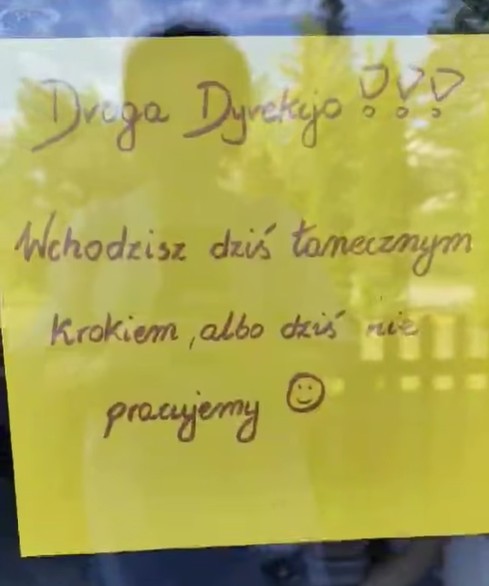 Droga Dyrekcjo !!!
Wchodzisz dziś tanecznym
krokiem, albo dziś nie
pracujemy ☺